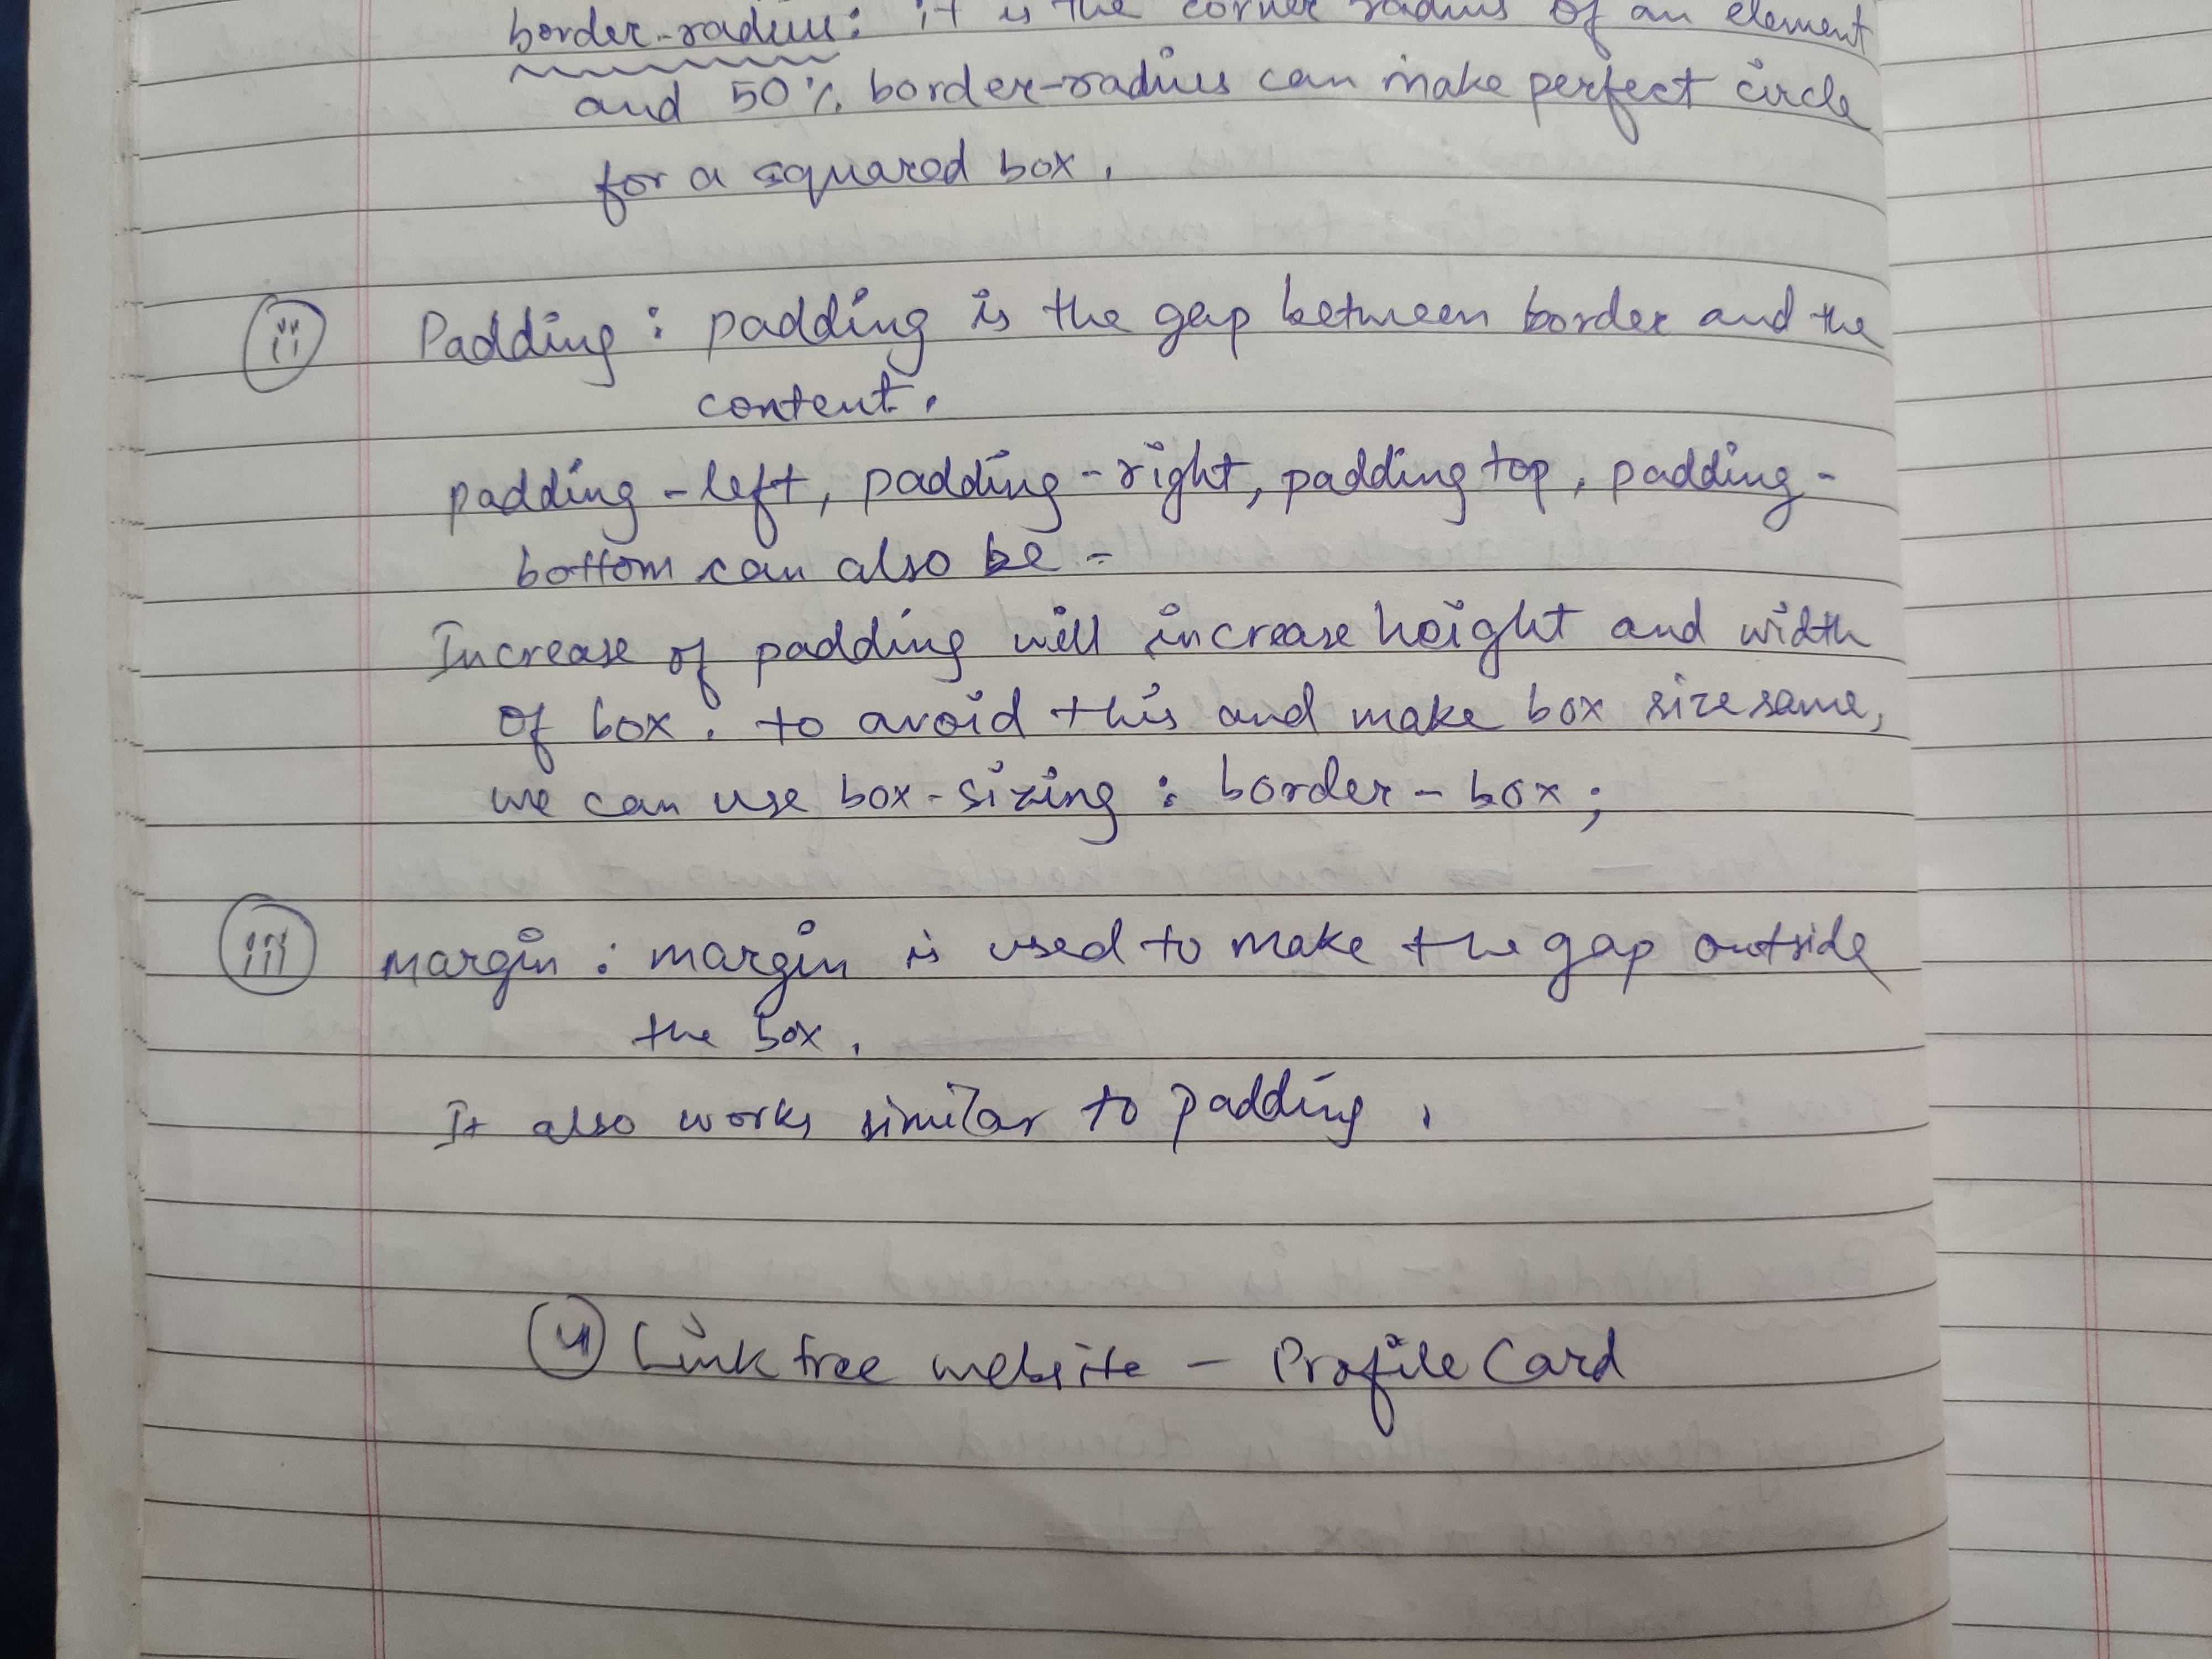 border-radius: it is the corner radius of an element
and 50% border-radius can make perfect circle
for a squared box.
(ii) Padding : padding is the gap between border and the
content.
padding-left, padding-right, padding top, padding-
bottom can also be -
Increase of padding will increase height and width
of box. to avoid this and make box size same,
we can use box-sizing : border-box;
(iii) margin : margin is used to make the gap outside
the box.
It also works similar to padding.
(4) Link tree website - Profile Card